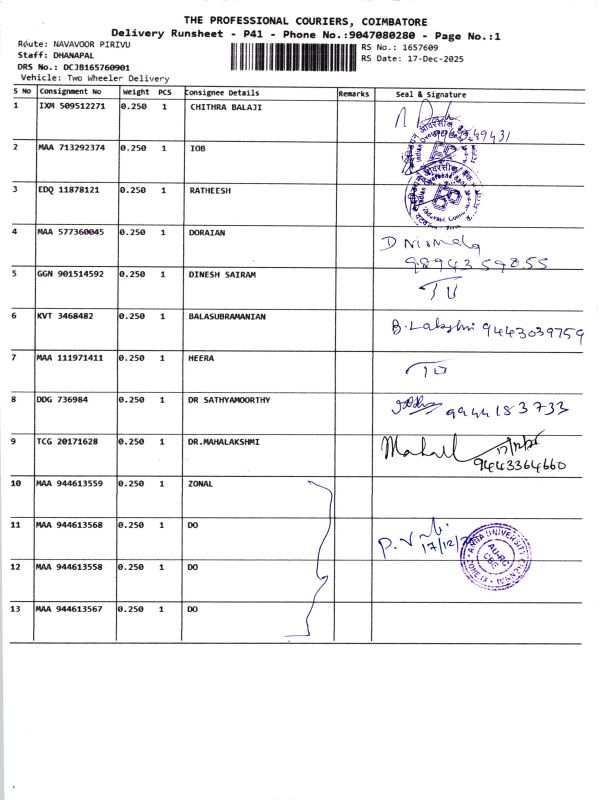 THE PROFESSIONAL COURIERS, COIMBATORE
Delivery Runsheet - P41 - Phone No.:9047080280 - Page No.:1
Route: NAVAVOOR PIRIVU
RS No.: 1657609
Staff: DHANAPAL
RS Date: 17-Dec-2025
DRS No.: DCJB165760901
Vehicle: Two Wheeler Delivery
S No Consignment No Weight PCS Consignee Details Remarks Seal & Signature
1 IXM 509512271 0.250 1 CHITHRA BALAJI
2 MAA 713292374 0.250 1 IOB
3 EDQ 11878121 0.250 1 RATHEESH
4 MAA 577360045 0.250 1 DORAIAN D Nirmala
9894359855
5 GGN 901514592 0.250 1 DINESH SAIRAM
6 KVT 3468482 0.250 1 BALASUBRAMANIAN B. Lakshmi 9443039759
7 MAA 111971411 0.250 1 HEERA
8 DDG 736984 0.250 1 DR SATHYAMOORTHY 9944183733
9 TCG 20171628 0.250 1 DR.MAHALAKSHMI
9443364660
10 MAA 944613559 0.250 1 ZONAL
11 MAA 944613568 0.250 1 DO
17/12/
ANNA UNIVERSITY CHENNAI
AU-RC
CBE
12 MAA 944613558 0.250 1 DO
13 MAA 944613567 0.250 1 DO